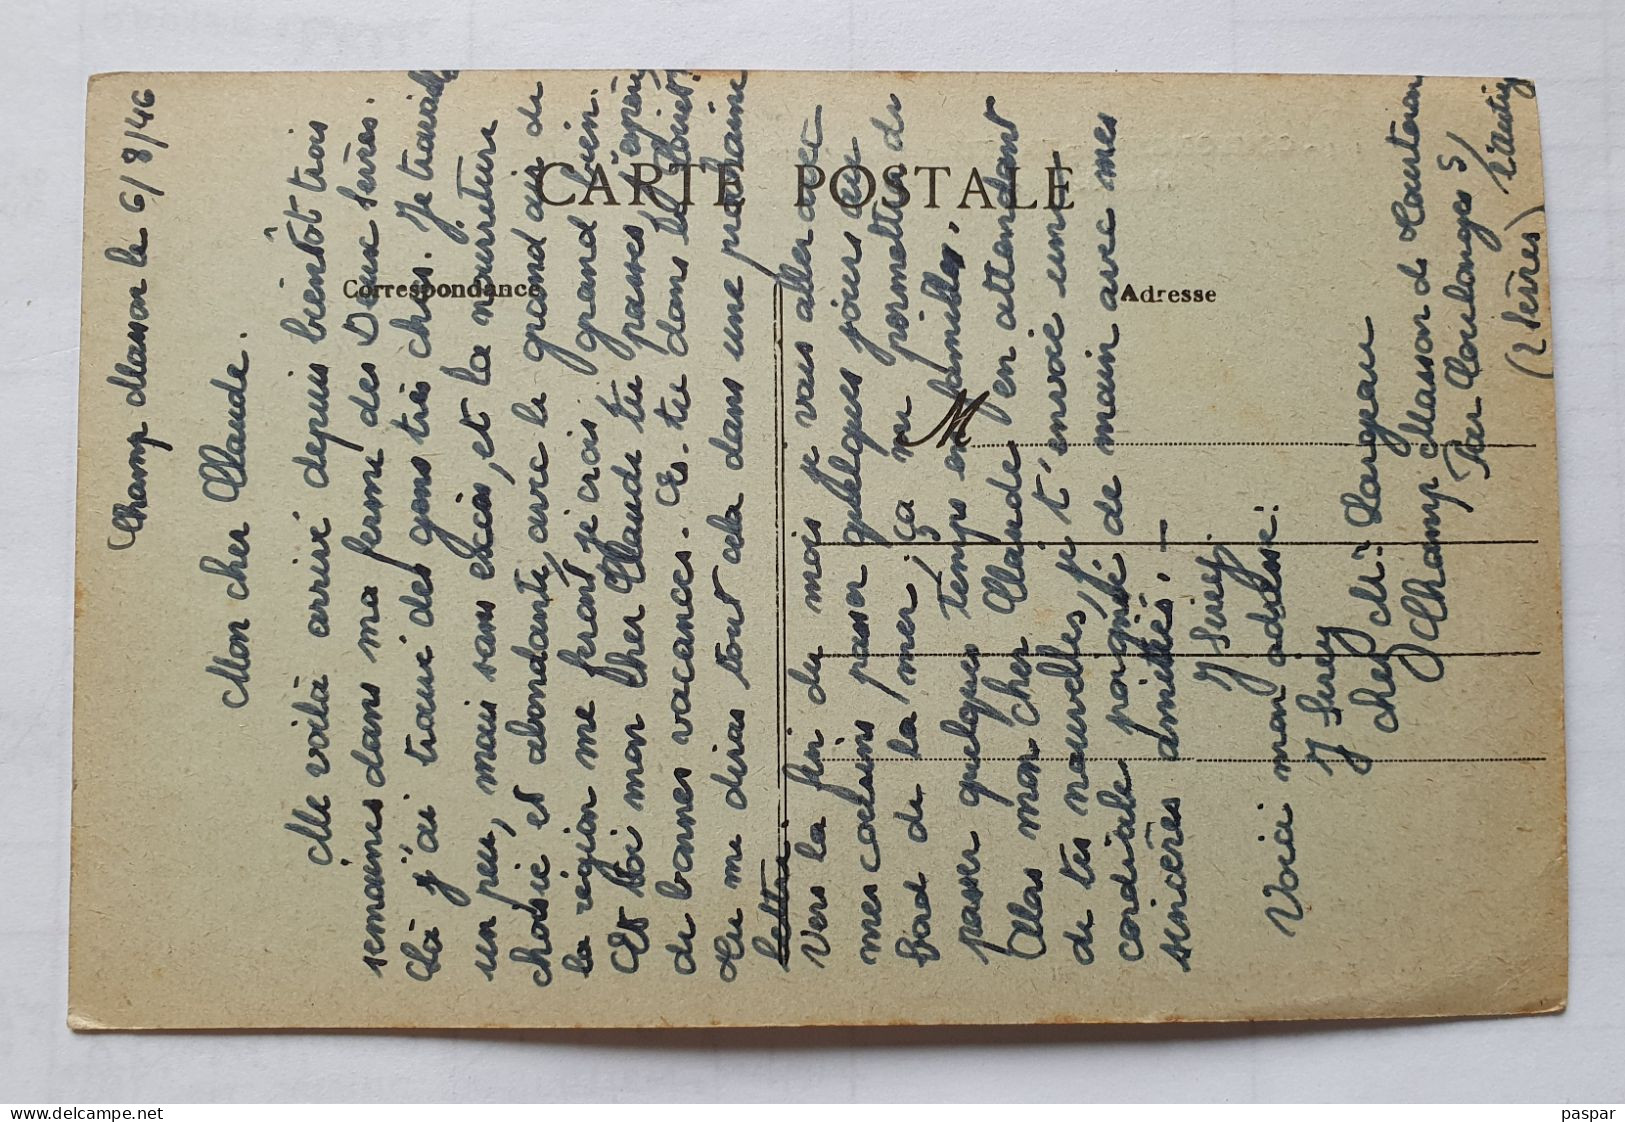 Champ Masson le 6/8/46
Mon cher Claude.
Me voilà arrivé depuis bientôt trois
semaines dans ma ferme des Deux Sèvres.
Là j'ai trouvé des gens très chers. Je travaille
un peu, mais sans excès, et la nourriture
choisie et abondante, avec le grand air de
la région me feront je crois grand bien.
Et toi mon cher Claude tu passes j'espère
de bonnes vacances. Es-tu dans le
Tu me diras tout cela dans une prochaine
lettre.
Vers la fin du mois je vais aller avec
mes cousins passer quelques jours au
bord de la mer; ça me permettra de
passer quelques temps en famille.
Allons mon cher Claude, en attendant
de tes nouvelles, je t'envoie une
cordiale poignée de main avec mes
sincères amitiés. —
J Surey
Voici mon adresse:
J Surey
chez Mr
Champ Masson de
Par Coulonges s/ l'Autize
(2 Sèvres)
CARTE POSTALE
Correspondance
Adresse
M
paspar
delcampe.net